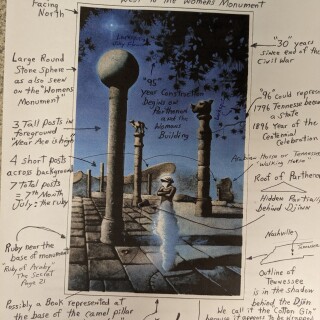 Facing
North
West to the Womens Monument
Large Round
Stone Sphere
as also seen
on the "Womens
Monument"
3 Tall Posts in
foreground
"Near Ace is high"
4 short posts
across background
7 Total posts
= 7th Month
July = the ruby
Ruby near the
base of monument
"Ruby of Araby"
"The Secret"
Page 21
Possibly a Book represented at
the base of the camel pillar
"95"
year Construction
begins on
Parthenon
and the
Womans
Building
"30" years
since end of the
Civil War
"96 could represent
1796 Tennessee became
a State
1896 Year of the
Centennial
Celebration
Arabian Horse or Tennessee
"Walking Horse"
Roof of Parthenon
Hidden Partially
behind Djinn
Nashville
Outline of
Tennessee
is in the shadow
behind the Djinn
We call it the "Cotton Gin"
because it appears to be wrapped